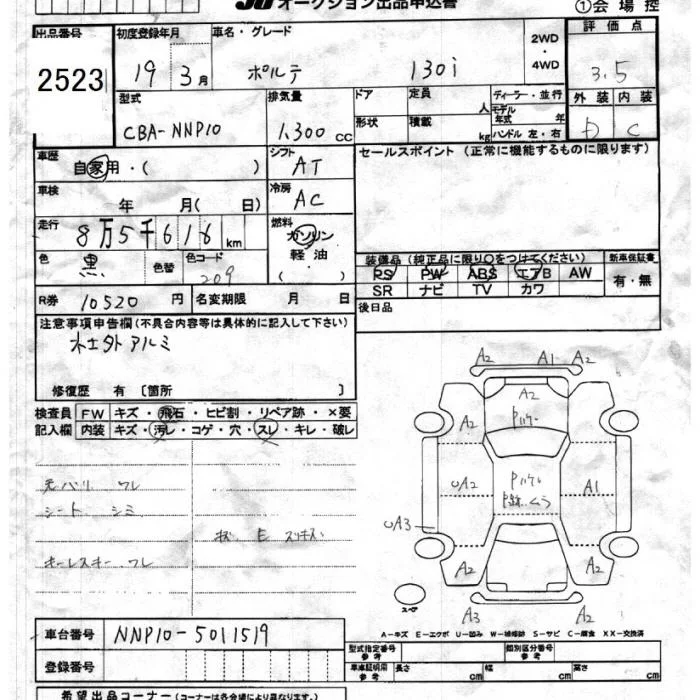 JU オークション出品申込書 ①会場控
出品番号 初度登録年月 車名・グレード 2WD・4WD 評価点
2523 19 3月 ポルテ 130i 3.5
型式 排気量 ドア 定員 人 ディーラー・並行 外装 内装
CBA-NNP10 1,300cc 形状 積載 kg モデル年式 年 ハンドル 左・右 D C
車歴 自家用・( ) シフト AT セールスポイント (正常に機能するものに限ります)
車検 年 月( 日) 冷房 AC
走行 8万5千616km 燃料 ガソリン 軽油 ( )
色 黒 色替 色コード 209
装備品 (純正品に限り○をつけてください) 新車保証書
PS PW ABS エアB AW 有・無
SR ナビ TV カワ
R券 10520円 名変期限 月 日 後日品
注意事項申告欄(不具合内容等は具体的に記入して下さい)
社外アルミ
修復歴 有 〔箇所 〕
検査員 FW キズ・飛石・ヒビ割・リペア跡・×要
記入欄 内装 キズ・汚レ・コゲ・穴・スレ・キレ・破レ
A2 A1 A2
A2
A2 A2
UA2 A1
UA3
A2 A2
A3 A2
シート シミ
キーレスキー ワレ
スペア
A-キズ E-エクボ U-凹み W-補修跡 S-サビ C-腐食 XX-交換済
車台番号 NNP10-5011519
登録番号
型式指定番号 参考 類別区分番号 参考
車庫証明用 参考 長さ cm 幅 cm 高さ cm
希望出品コーナー (コーナーは各会場により異なります。)